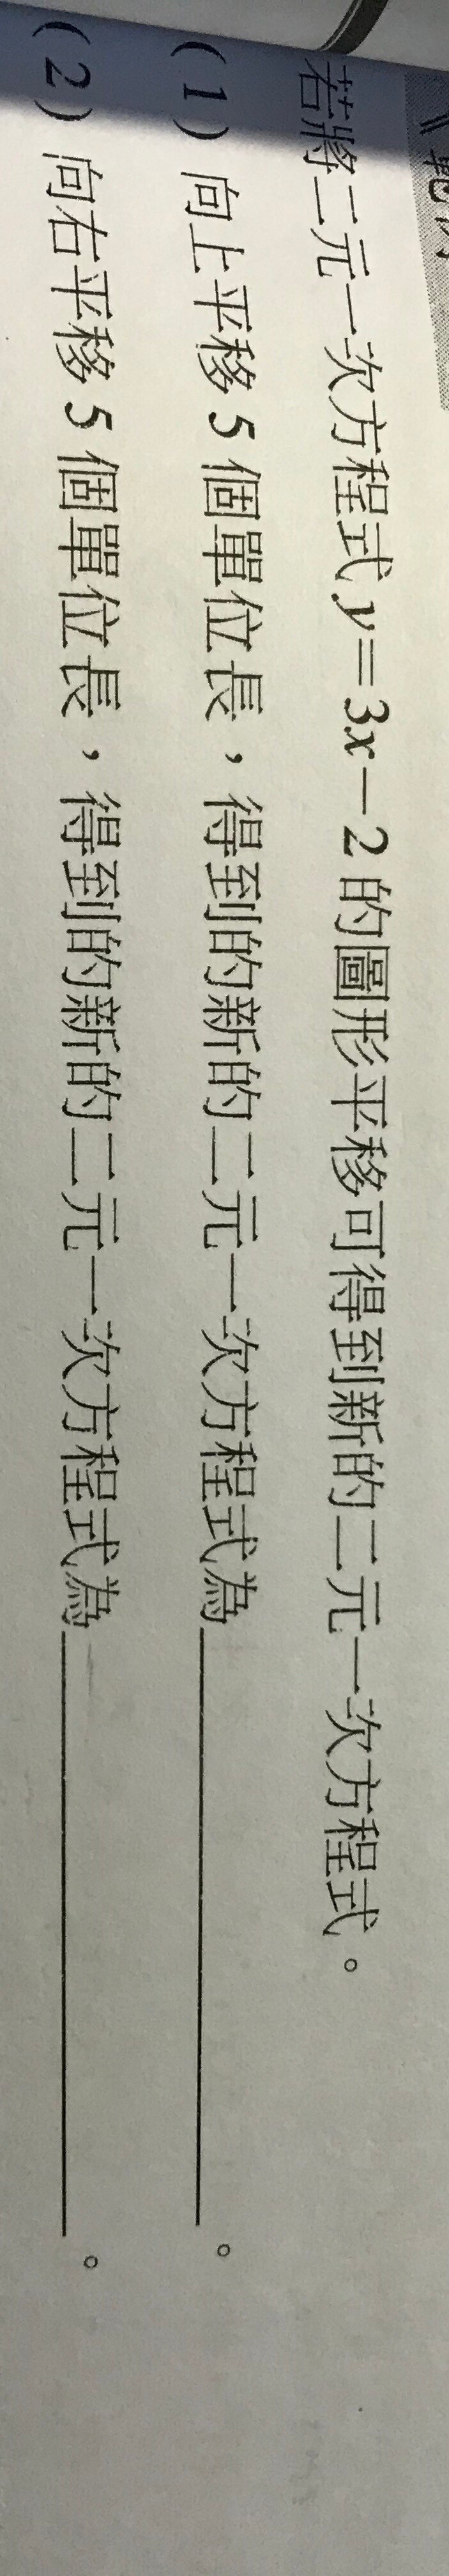 若將二元一次方程式 y=3x-2 的圖形平移可得到新的二元一次方程式。
(1) 向上平移 5 個單位長，得到的新的二元一次方程式為＿＿＿＿＿＿＿＿。
(2) 向右平移 5 個單位長，得到的新的二元一次方程式為＿＿＿＿＿＿＿＿。